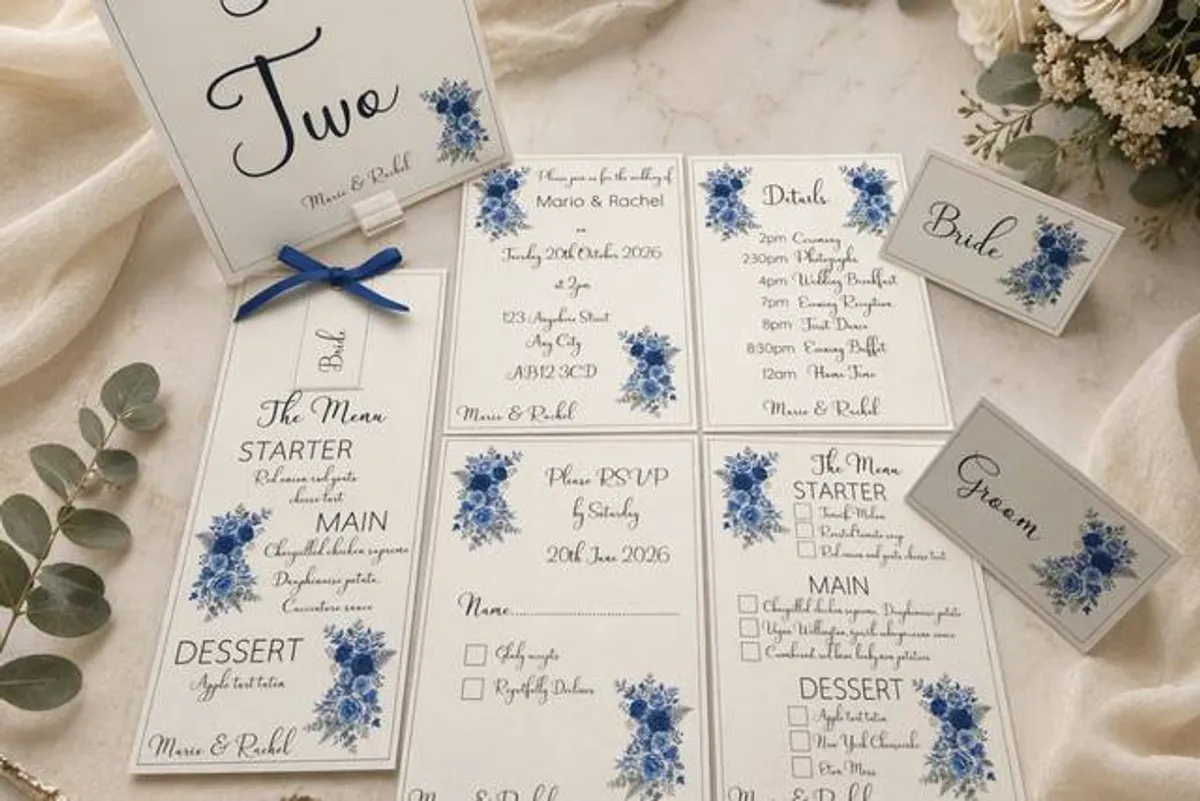 Two
Mario & Rachel
Bride
The Menu
STARTER
Red onion and goats
cheese tart
MAIN
Chargrilled chicken supreme
Dauphinoise potato
Cacciatore sauce
DESSERT
Apple tart tatin
Mario & Rachel
Please join us for the wedding of
Mario & Rachel
on
Tuesday 20th October 2026
at 2pm
123 Anywhere Street
Any City
AB12 3CD
Mario & Rachel
Details
2pm Ceremony
230pm Photographs
4pm Wedding Breakfast
7pm Evening Reception
8pm First Dance
8:30pm Evening Buffet
12am Home Time
Mario & Rachel
Bride
Groom
Please RSVP
by Saturday
20th June 2026
Name
Gladly accepts
Regretfully Declines
The Menu
STARTER
Melon
Roasted tomato soup
Red onion and goats cheese tart
MAIN
Chargrilled chicken supreme, Dauphinoise potato
Vegan Wellington, sauce
Cumberland
DESSERT
Apple tart tatin
New York Cheesecake
Eton Mess